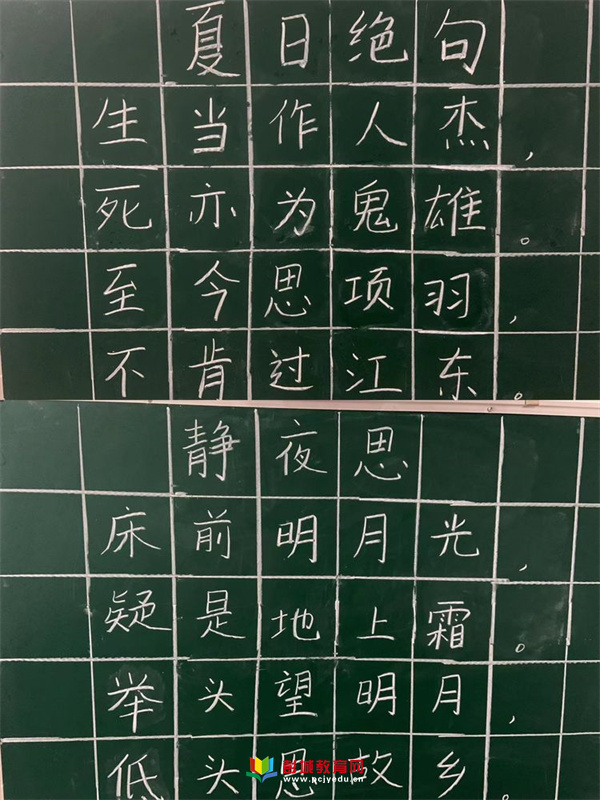 夏日绝句
生当作人杰，
死亦为鬼雄。
至今思项羽，
不肯过江东。
静夜思
床前明月光，
疑是地上霜。
举头望明月，
低头思故乡。